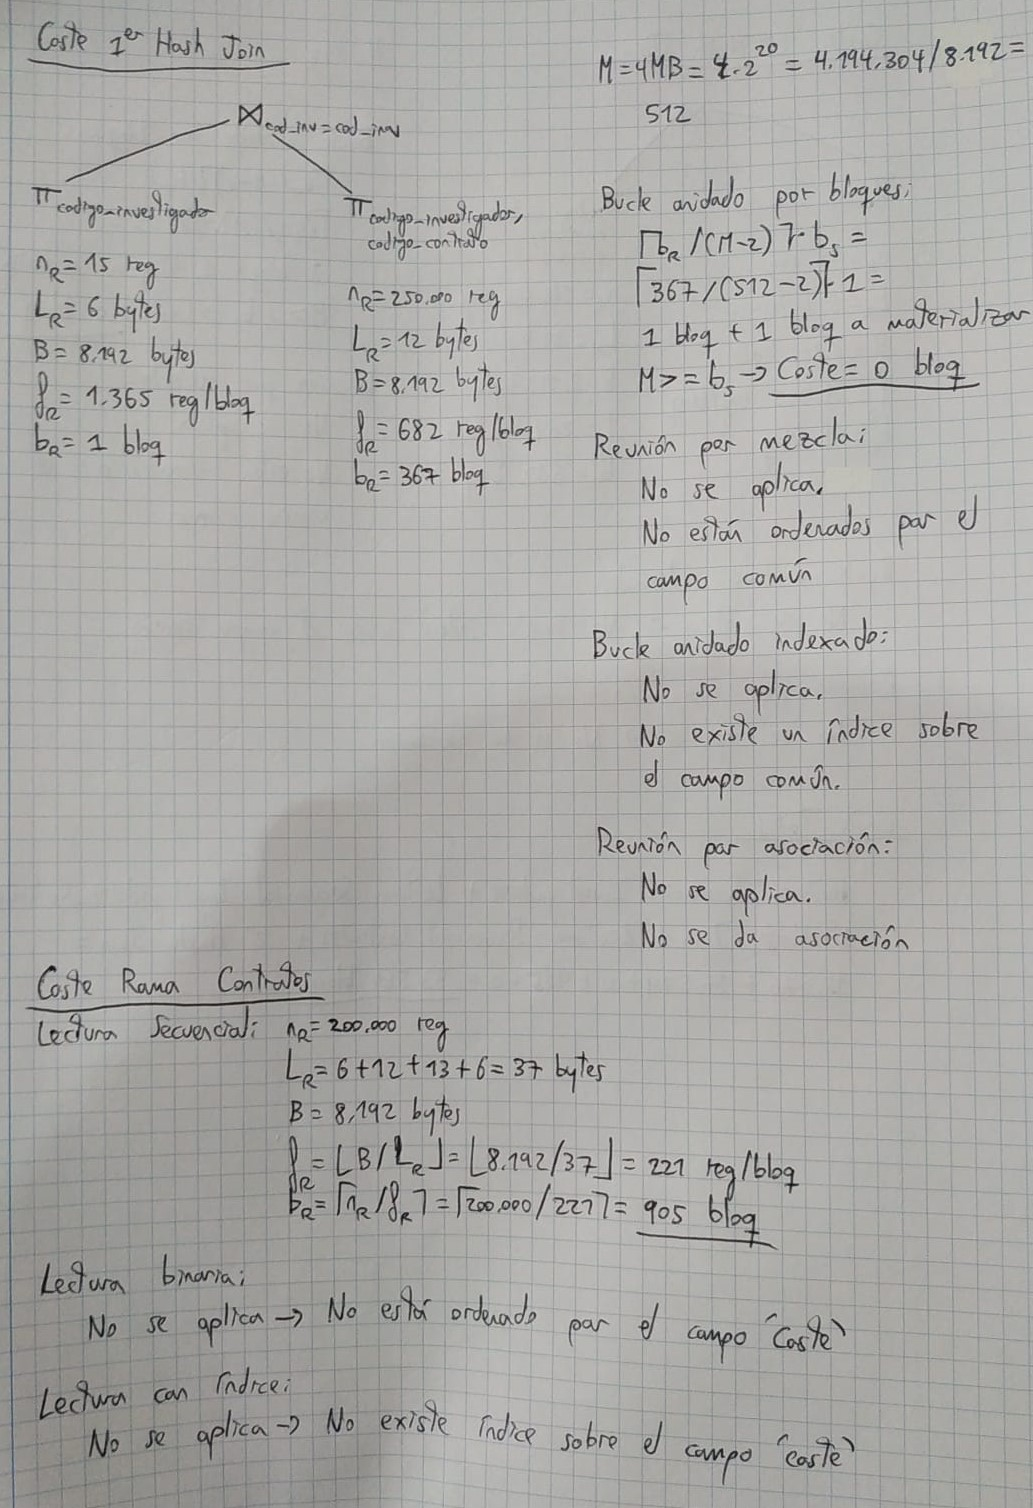 Coste 1er Hash Join
⋈ cod_inv = cod_inv
π codigo_investigador
nR = 15 reg
LR = 6 bytes
B = 8.192 bytes
fR = 1.365 reg/bloq
bR = 1 bloq
π codigo_investigador,
codigo_contrato
nR = 250.000 reg
LR = 12 bytes
B = 8.192 bytes
fR = 682 reg/bloq
bR = 367 bloq
M = 4MB = 4·2^20 = 4.194.304/8.192 =
512
Bucle anidado por bloques:
⌈bR/(M-2)⌉·bs =
⌈367/(512-2)⌉·1 =
1 bloq + 1 bloq a materializar
M >= bs → Coste = 0 bloq
Reunión por mezcla:
No se aplica.
No están ordenados por el
campo común
Bucle anidado indexado:
No se aplica.
No existe un índice sobre
el campo común.
Reunión por asociación:
No se aplica.
No se da asociación
Coste Rama Contratos
Lectura Secuencial: nR = 200.000 reg
LR = 6+12+13+6 = 37 bytes
B = 8.192 bytes
fR = ⌊B/LR⌋ = ⌊8.192/37⌋ = 221 reg/bloq
bR = ⌈nR/fR⌉ = ⌈200.000/221⌉ = 905 bloq
Lectura binaria:
No se aplica → No está ordenado por el campo "Coste"
Lectura con índice:
No se aplica → No existe índice sobre el campo "coste"